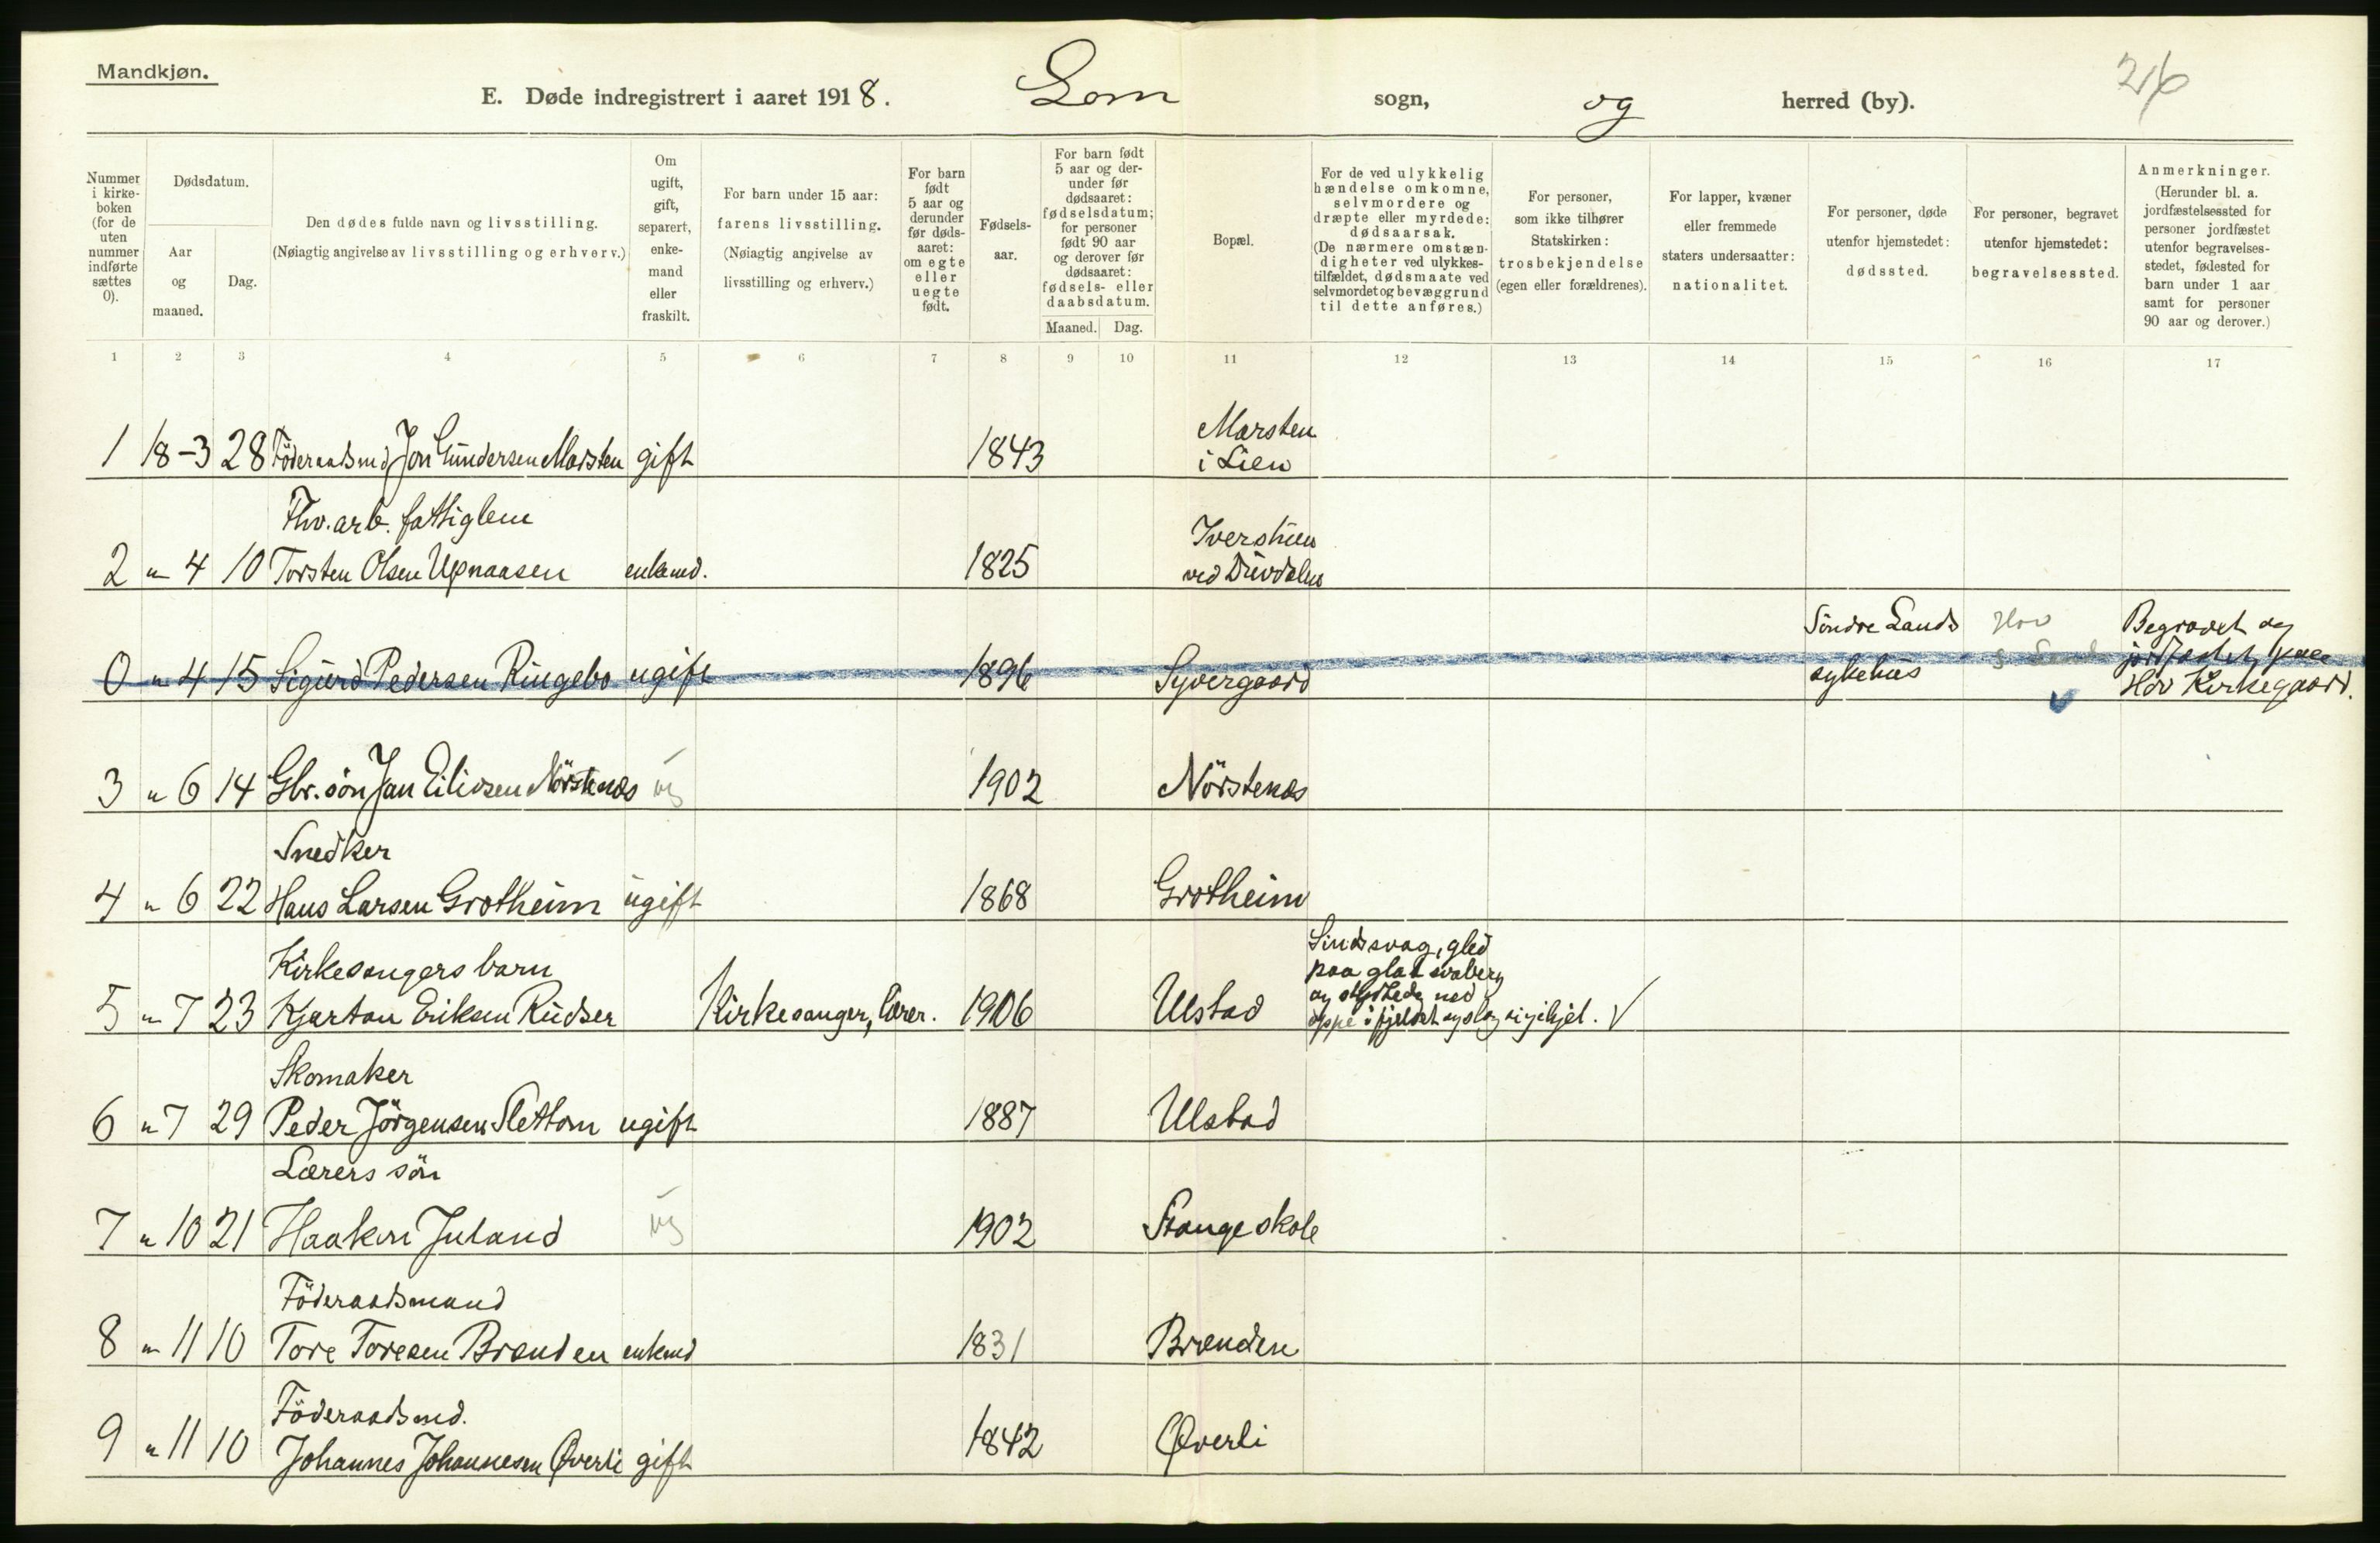 Mandkjøn.
E. Døde indregistrert i aaret 1918. Lom sogn, og herred (by). 26
Nummer i kirke- boken (for de uten nummer indførte sættes 0).
Dødsdatum.
Aar og maaned.
Dag.
Den dødes fulde navn og livsstilling.
(Nøiagtig angivelse av livsstilling og erhverv.)
Om ugift, gift, separert, enke- mand eller fraskilt.
For barn under 15 aar:
farens livsstilling.
(Nøiagtig angivelse av
livsstilling og erhverv.)
For barn født 5 aar og derunder før døds- aaret: om egte eller uegte født.
Fødsels- aar.
For barn født 5 aar og der- under før dødsaaret: fødselsdatum; for personer født 90 aar og derover før dødsaaret: fødsels- eller daabsdatum.
Maaned. Dag.
Bopæl.
For de ved ulykkelig hændelse omkomne, selvmordere og dræpte eller myrdede: dødsaarsak. (De nærmere omstæn- digheter ved ulykkes- tilfældet, dødsmaate ved selvmordet og bevæggrund til dette anføres.)
For personer, som ikke tilhører Statskirken: trosbekjendelse (egen eller forældrenes).
For lapper, kvæner eller fremmede staters undersaatter: nationalitet.
For personer, døde utenfor hjemstedet: dødssted.
For personer, begravet utenfor hjemstedet: begravelsessted.
Anmerkninger. (Herunder bl. a. jordfæstelsessted for personer jordfæstet utenfor begravelses- stedet, fødested for barn under 1 aar samt for personer 90 aar og derover.)
1 2 3 4 5 6 7 8 9 10 11 12 13 14 15 16 17
Marsten
1 18-3 28 Föderaadsmd Jon Gundersen Marsten gift 1843 i Lien
Fhv. arb. fattiglem
2 " 4 10 Torsten Olsen enkemd. 1825 ved
Søndre Lands Hov Begravet og
0 " 4 15 Sigurd Pedersen Ringebo ugift 1896 Syvergaard sykehus jordfæstet paa
Hov Kirkegaard.
3 " 6 14 Gbr. sön Jan Eilivsen Nörstenæs ug 1902 Nörstenæs
Snedker
4 " 6 22 Hans Larsen Grotheim ugift 1868 Grotheim
Kirkesangers barn Sindssvag, gled
paa glat svaberg
5 " 7 23 Kjartan Eriksen Rudser Kirkesanger, lærer. 1906 Ulstad og styrtede ned
oppe i fjeldet og slog sig ihjel. √
Skomaker
6 " 7 29 Peder Jörgensen Slettom ugift 1887 Ulstad
Lærers sön
7 " 10 21 Haakon Juland ug 1902 Stange skole
Föderaadsmand
8 " 11 10 Tore Toresen Brænden enkemd 1831 Brænden
Föderaadsmd.
9 " 11 10 Johannes Johannesen Øverli gift 1842 Øverli